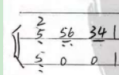 2
5 56 34 |
5 0 0 |